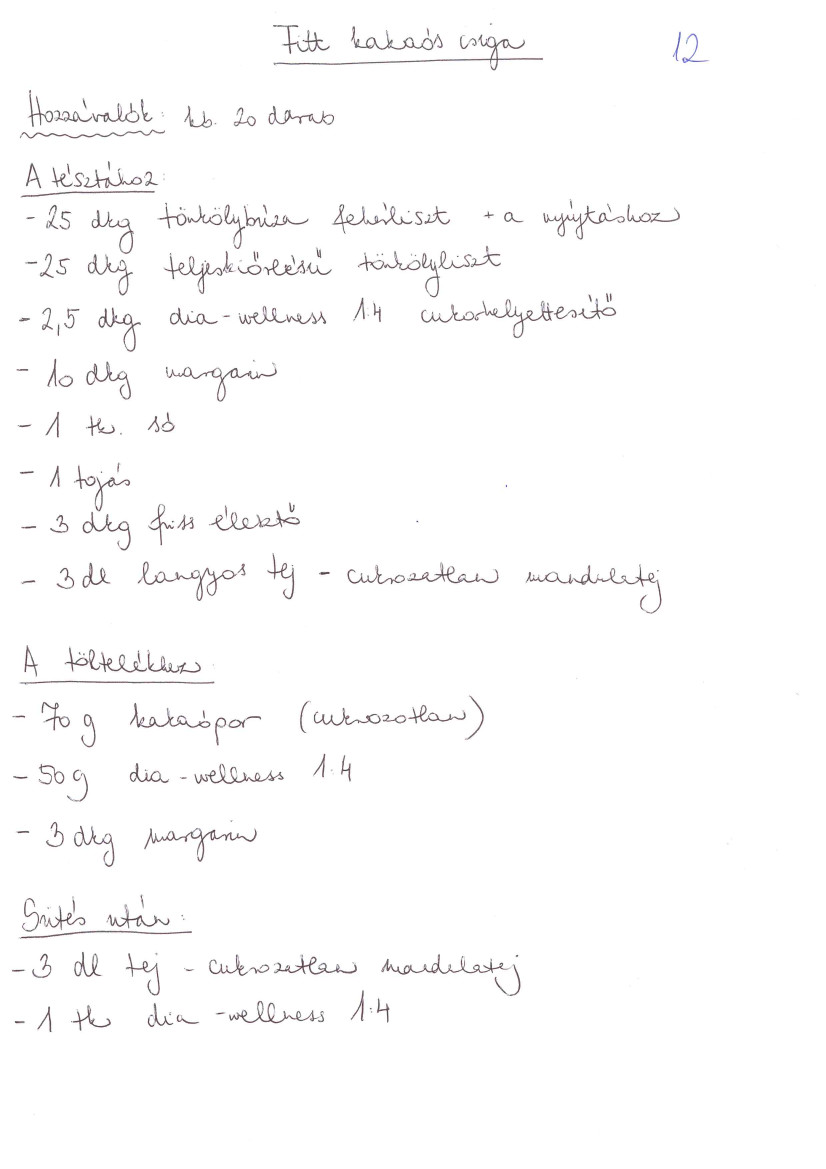 Fitt kakaós csiga 12
Hozzávalók: kb. 20 darab
A tésztához:
- 25 dkg tönkölybúza fehérliszt + a nyújtáshoz
- 25 dkg teljeskiőrlésű tönkölyliszt
- 2,5 dkg dia-wellness 1:4 cukorhelyettesítő
- 10 dkg margarin
- 1 tk. só
- 1 tojás
- 3 dkg friss élesztő
- 3 dl langyos tej - cukrozatlan mandulatej
A töltelékhez:
- 70 g kakaópor (cukrozatlan)
- 50 g dia-wellness 1:4
- 3 dkg margarin
Sütés után:
- 3 dl tej - cukrozatlan mandulatej
- 1 tk dia-wellness 1:4